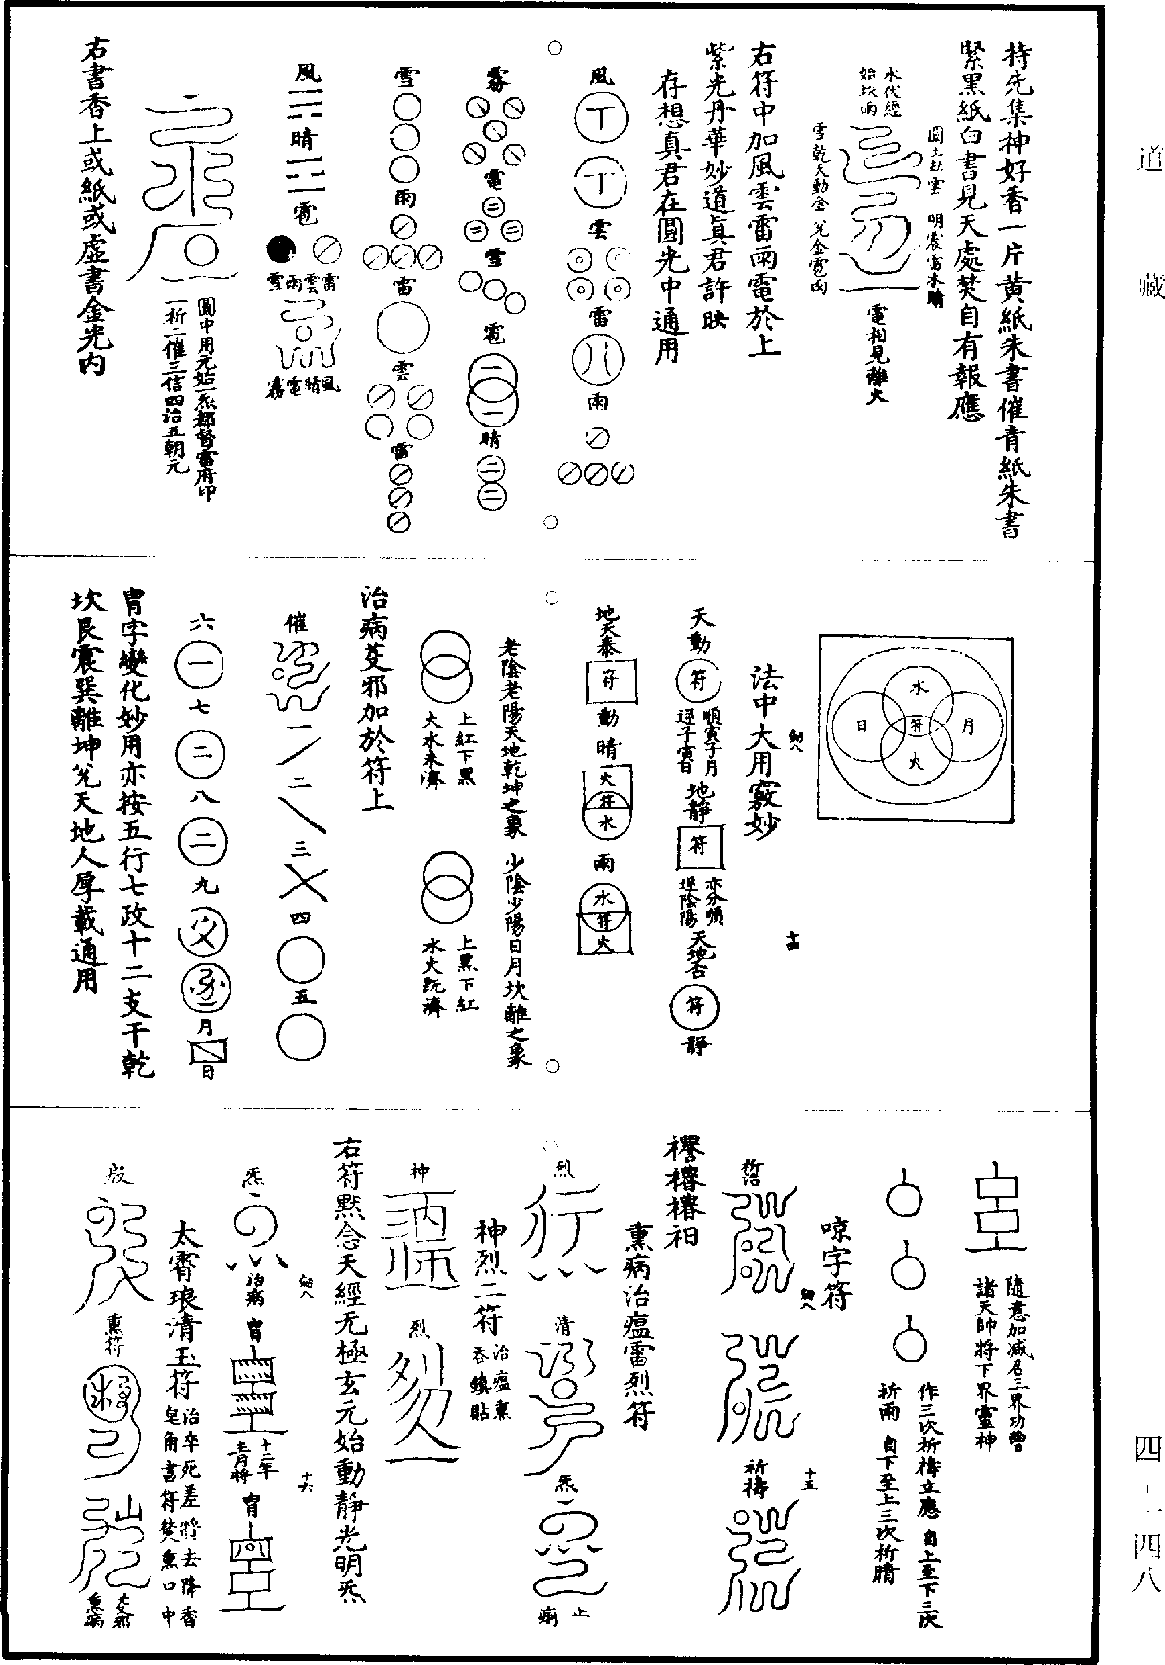 道藏
四-一四八
持先集神好香一片黄紙朱書催青紙朱書
緊黑紙白書見天處焚自有報應
電相見離火
右符中加風雲雷雨電於上
紫光丹華妙道眞君許映
存想真君在圓光中通用
風
雲
雷
雨
霧
電
雪
雹
晴
雪
雨
雷
雲
雷
風
晴
雹
雪雨雲雷
霧電晴風
圓中用元始一炁都督雷府印
一祈二催三信四治五朝元
右書香上或紙或虛書金光内
月
水
符
火
日
法中大用竅妙
天動
符
順寅子月
逆子寅日
地靜
符
亦分順
逆陰陽
天地否
符
靜
地天泰
符
動
晴
火
符
水
雨
水
符
火
十四
老陰老陽天地乾坤之象
少陰少陽日月坎離之象
上紅下黑
火水未濟
上黑下紅
水火既濟
治病芟邪加於符上
催
一
二
三
四
五
六
七
八
九
月
日
胄字變化妙用亦按五行七政十二支干乾
坎艮震巽離坤兌天地人厚載通用
隨意加減召三界功曹
諸天帥將下界靈神
作三次祈禱立應
自上至下三次
祈雨
自下至上三次祈晴
嘹字符
祈禱
十五
熏病治瘟雷烈符
烈
清
炁
止
痢
神烈二符
治瘟熏
吞鎮貼
神
烈
右符默念天經无極玄元始動靜光明炁
炁
治病
胄
十二年
十二月將
胄
十六
太霄琅清玉符
治卒死差將去降香
皂角書符焚熏口中
熏符